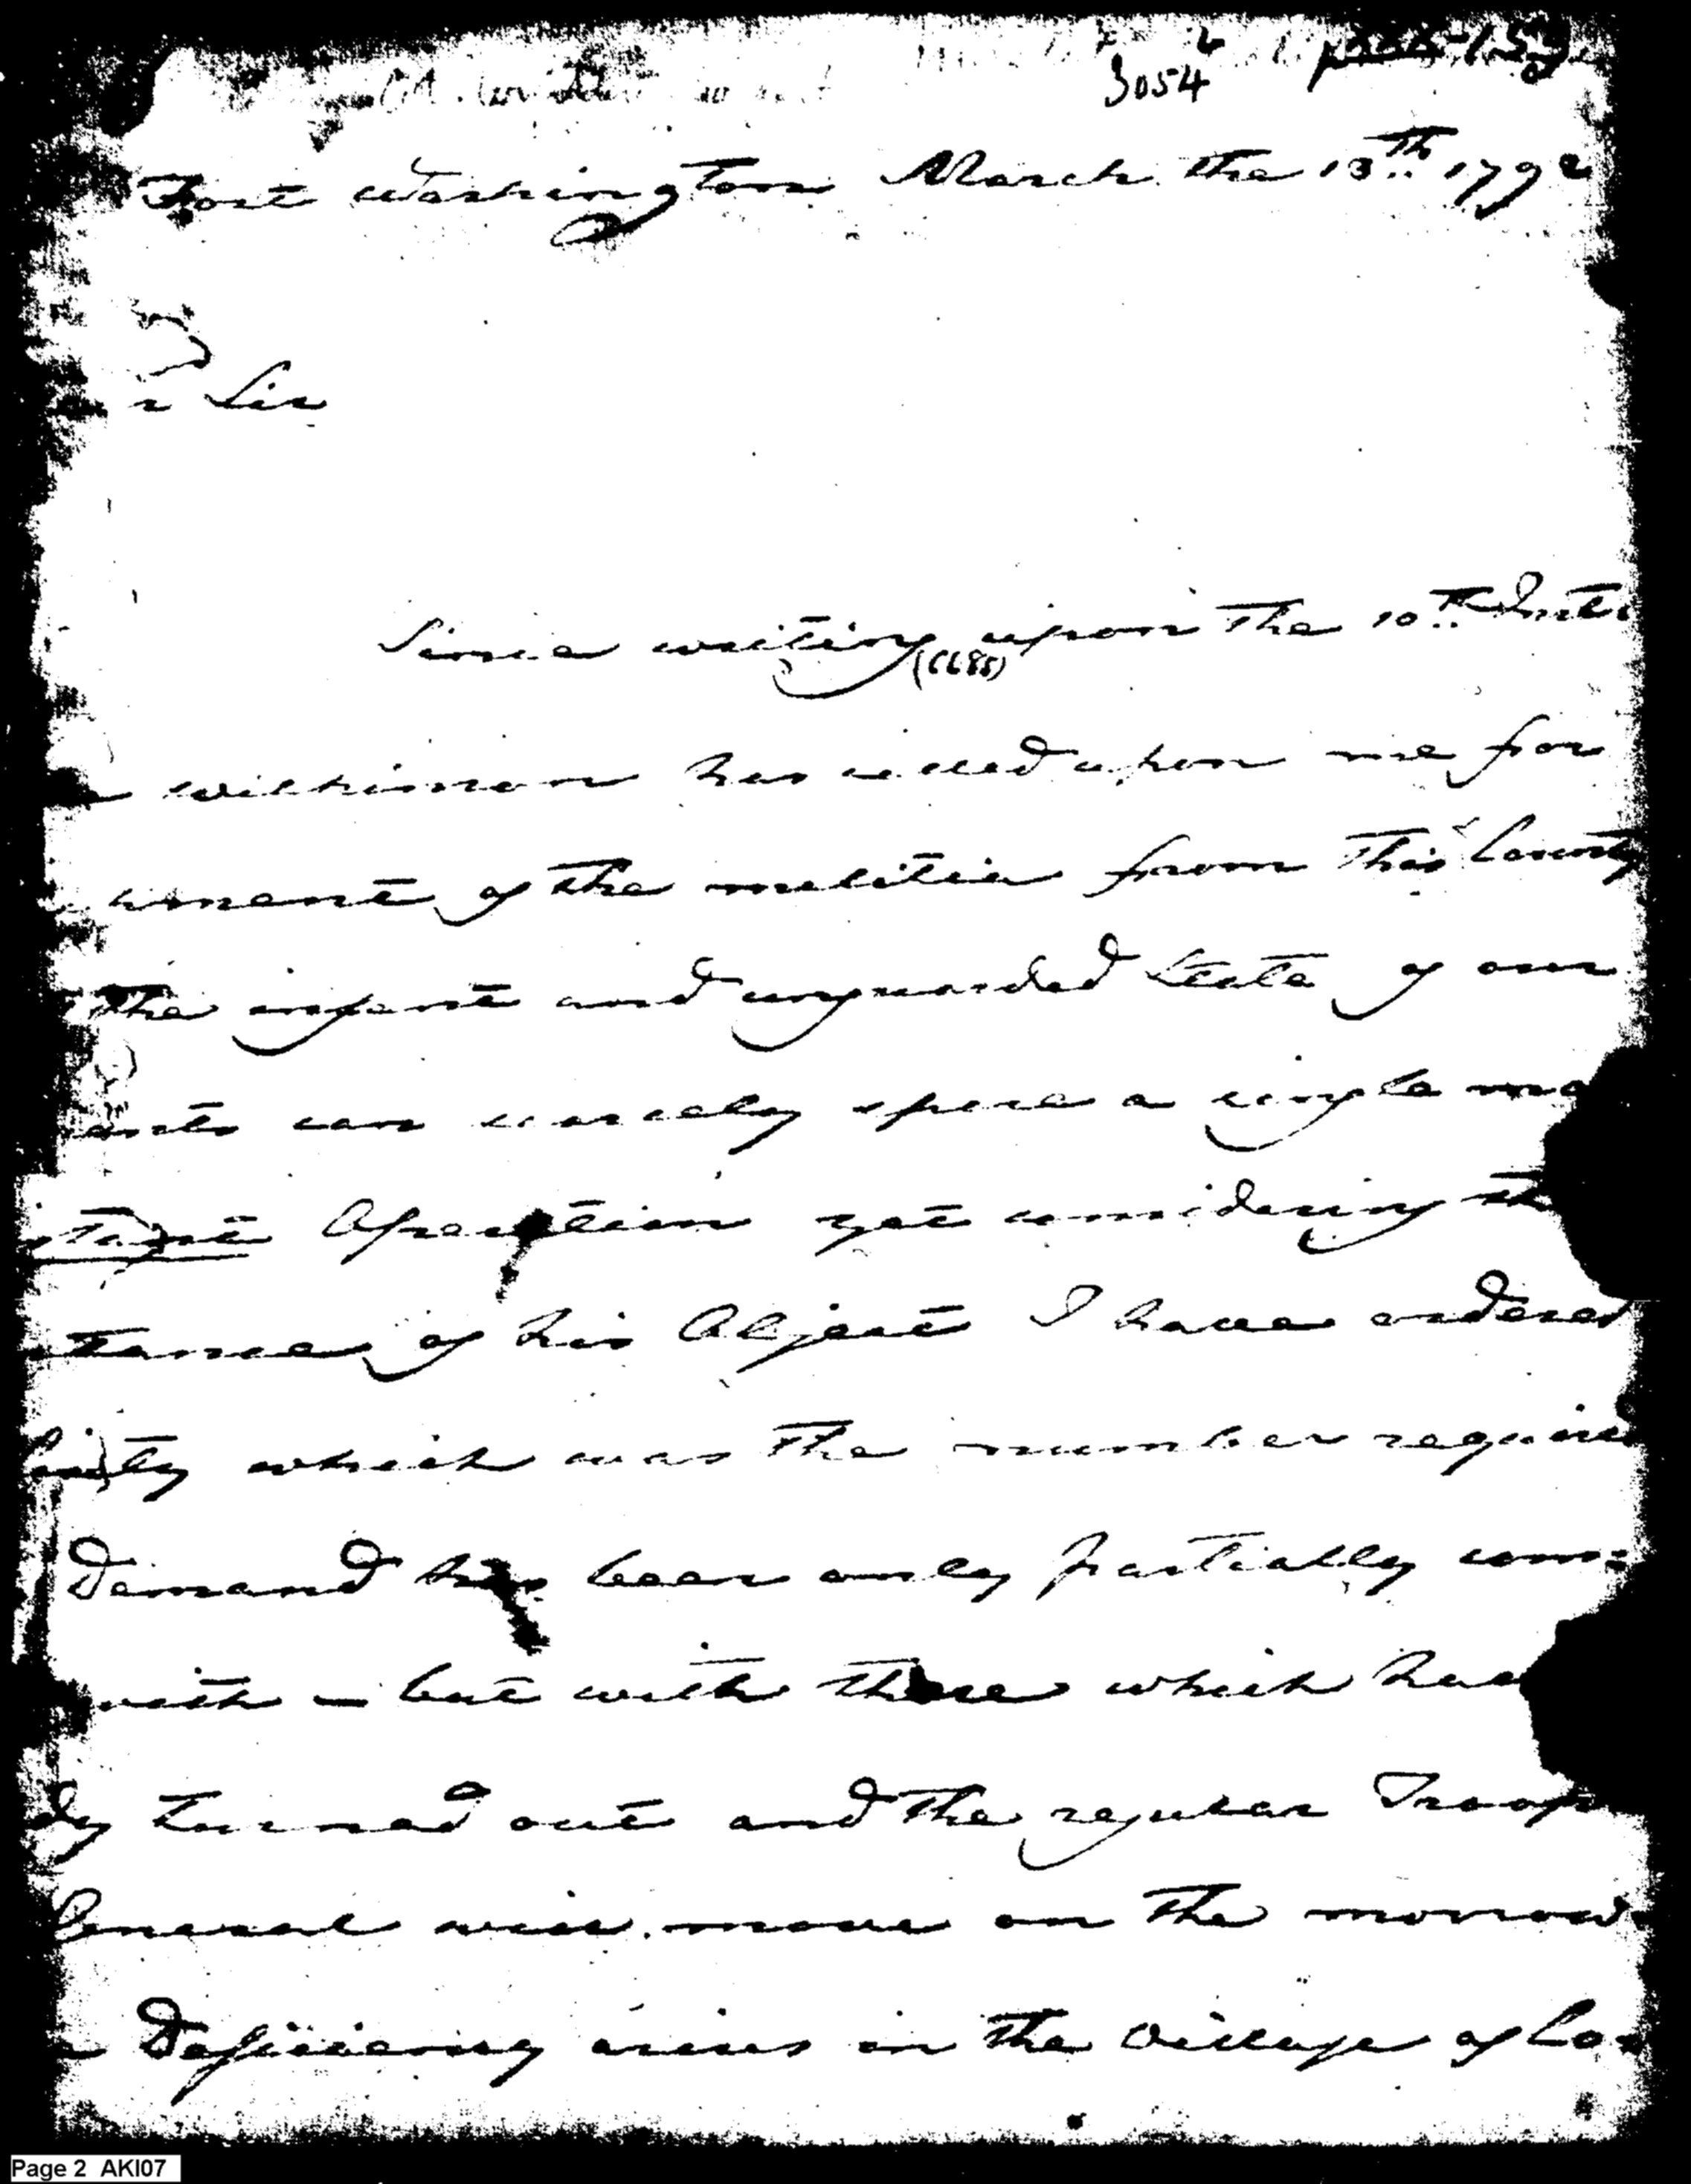 3054
Fort Washington March the 13th 1792
Sir
Since writing upon the 10th Inst.
(CC88)
Wilkinson has called upon me for
ment of the militia from this County
the infant and unguarded State of our
ents can scarcely spare a single ma
stant Operation yet considering th
tance of his Object I have ordered
which was the number require
Demand has been only partially com=
with – but with those which hav
dy turned out and the regular Troops
General will move on the morrow
Deficiency arises in the Village of Co
Page 2 AKI07